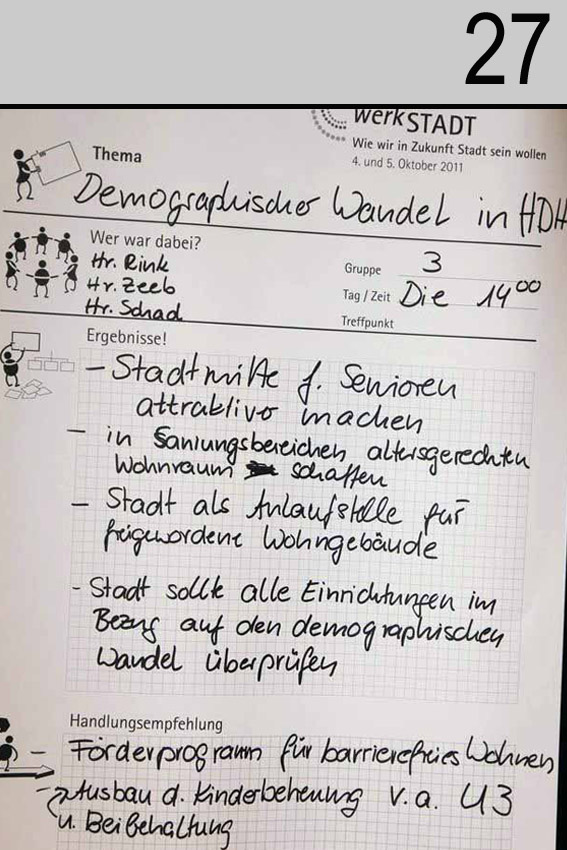 27
WerkSTADT
Wie wir in Zukunft Stadt sein wollen
4. und 5. Oktober 2011
Thema
Demographischer Wandel in HDH
Wer war dabei?
Hr. Rink
Hr. Zeeb
Hr. Schad
Gruppe 3
Tag / Zeit Die 14⁰⁰
Treffpunkt
Ergebnisse!
- Stadtmitte f. Senioren
attraktiver machen
- in Saniungsbereichen altersgerechten
Wohnraum schaffen
- Stadt als Anlaufstelle für
freigewordene Wohngebäude
- Stadt sollte alle Einrichtungen im
Bezug auf den demographischen
Wandel überprüfen
Handlungsempfehlung
- Förderprogramm für barrierefreies Wohnen
- Ausbau d. Kinderbetreuung v.a. U3
u. Beibehaltung